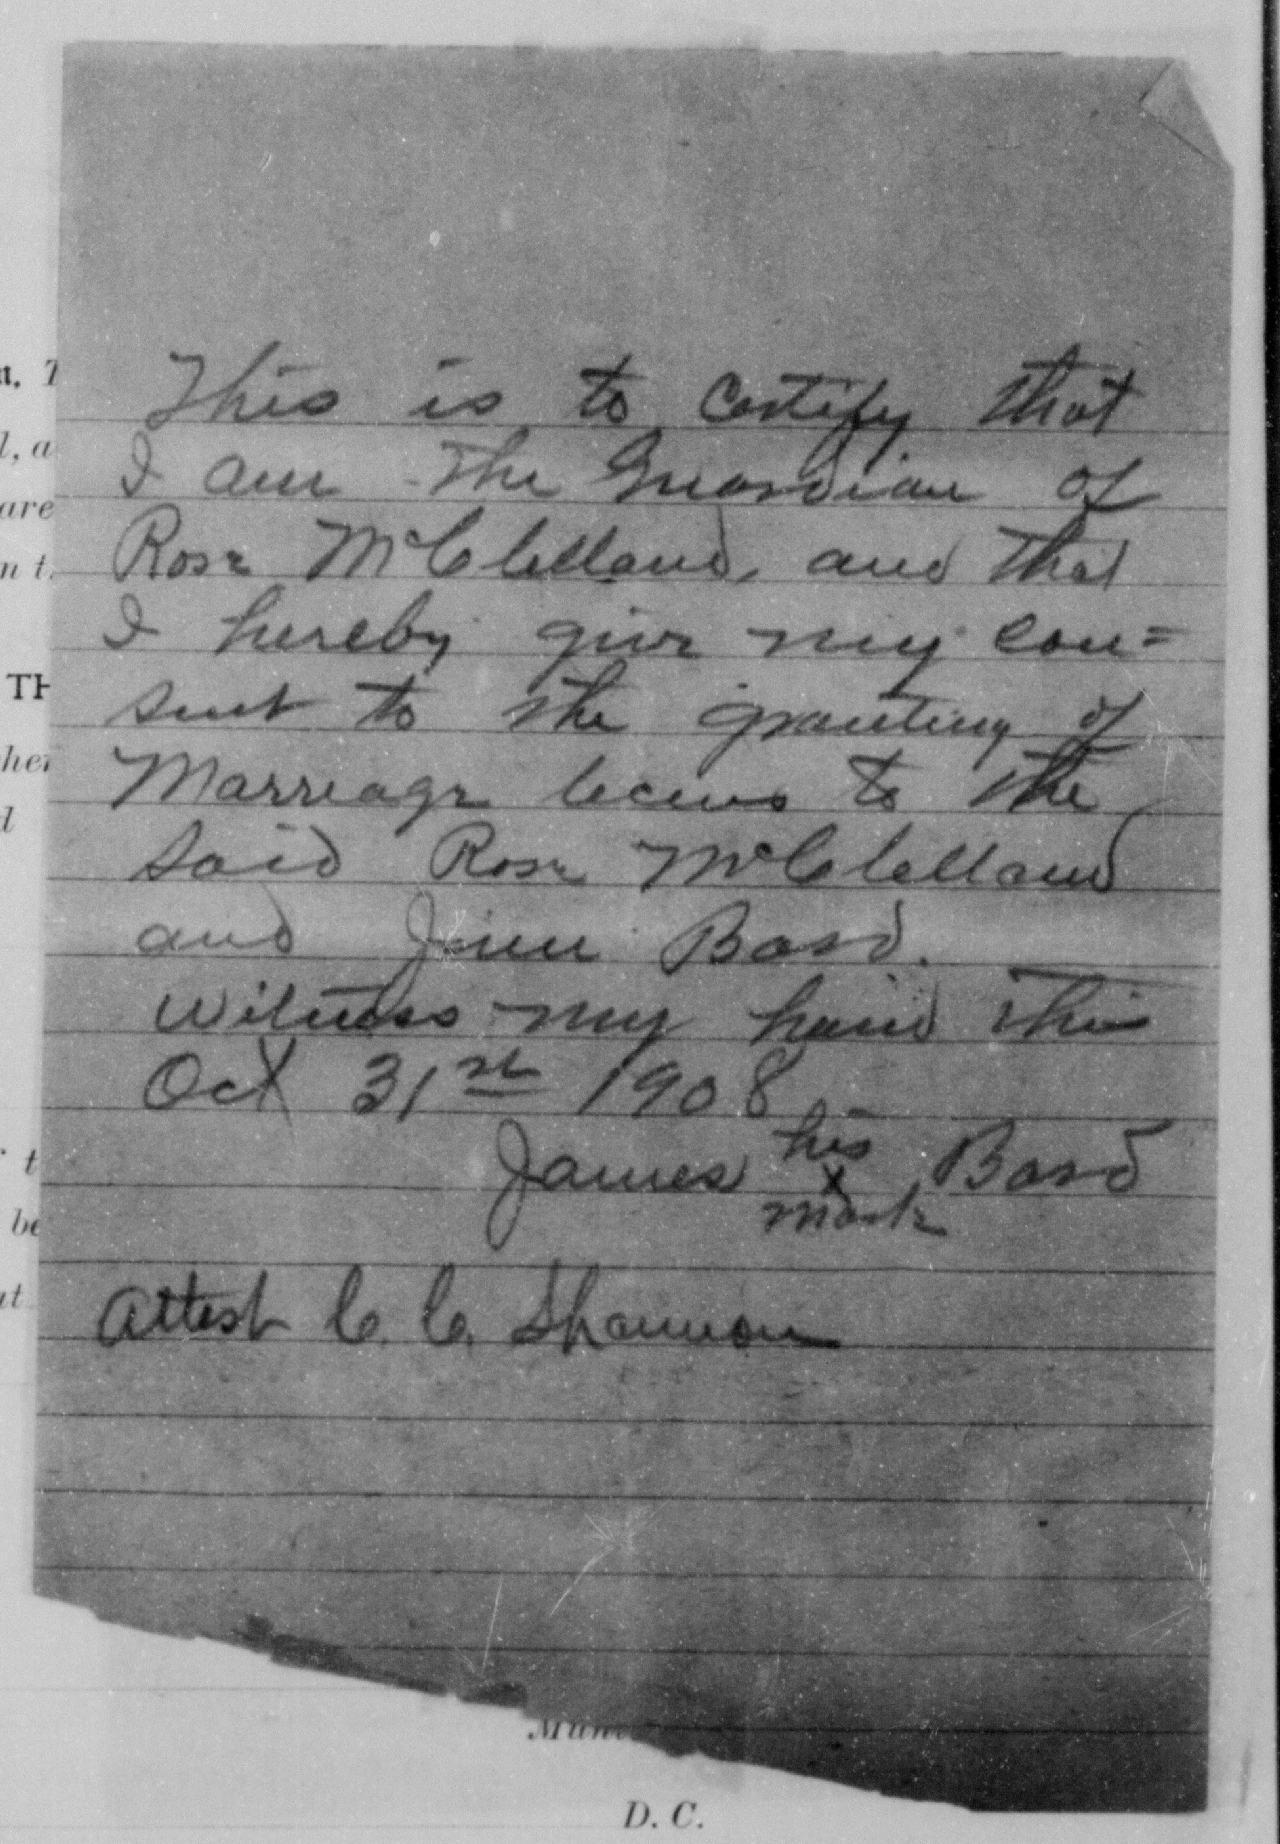 This is to Certify that
I am the Guardian of
Rose McClelland, and that
I hereby give my con=
sent to the granting of
Marriage licens to the
said Rose McClelland
and Jim Bard.
Witness my hand this
Oct 31st 1908
his
James x Bard
mark
Attest C. C. Shannon
D. C.